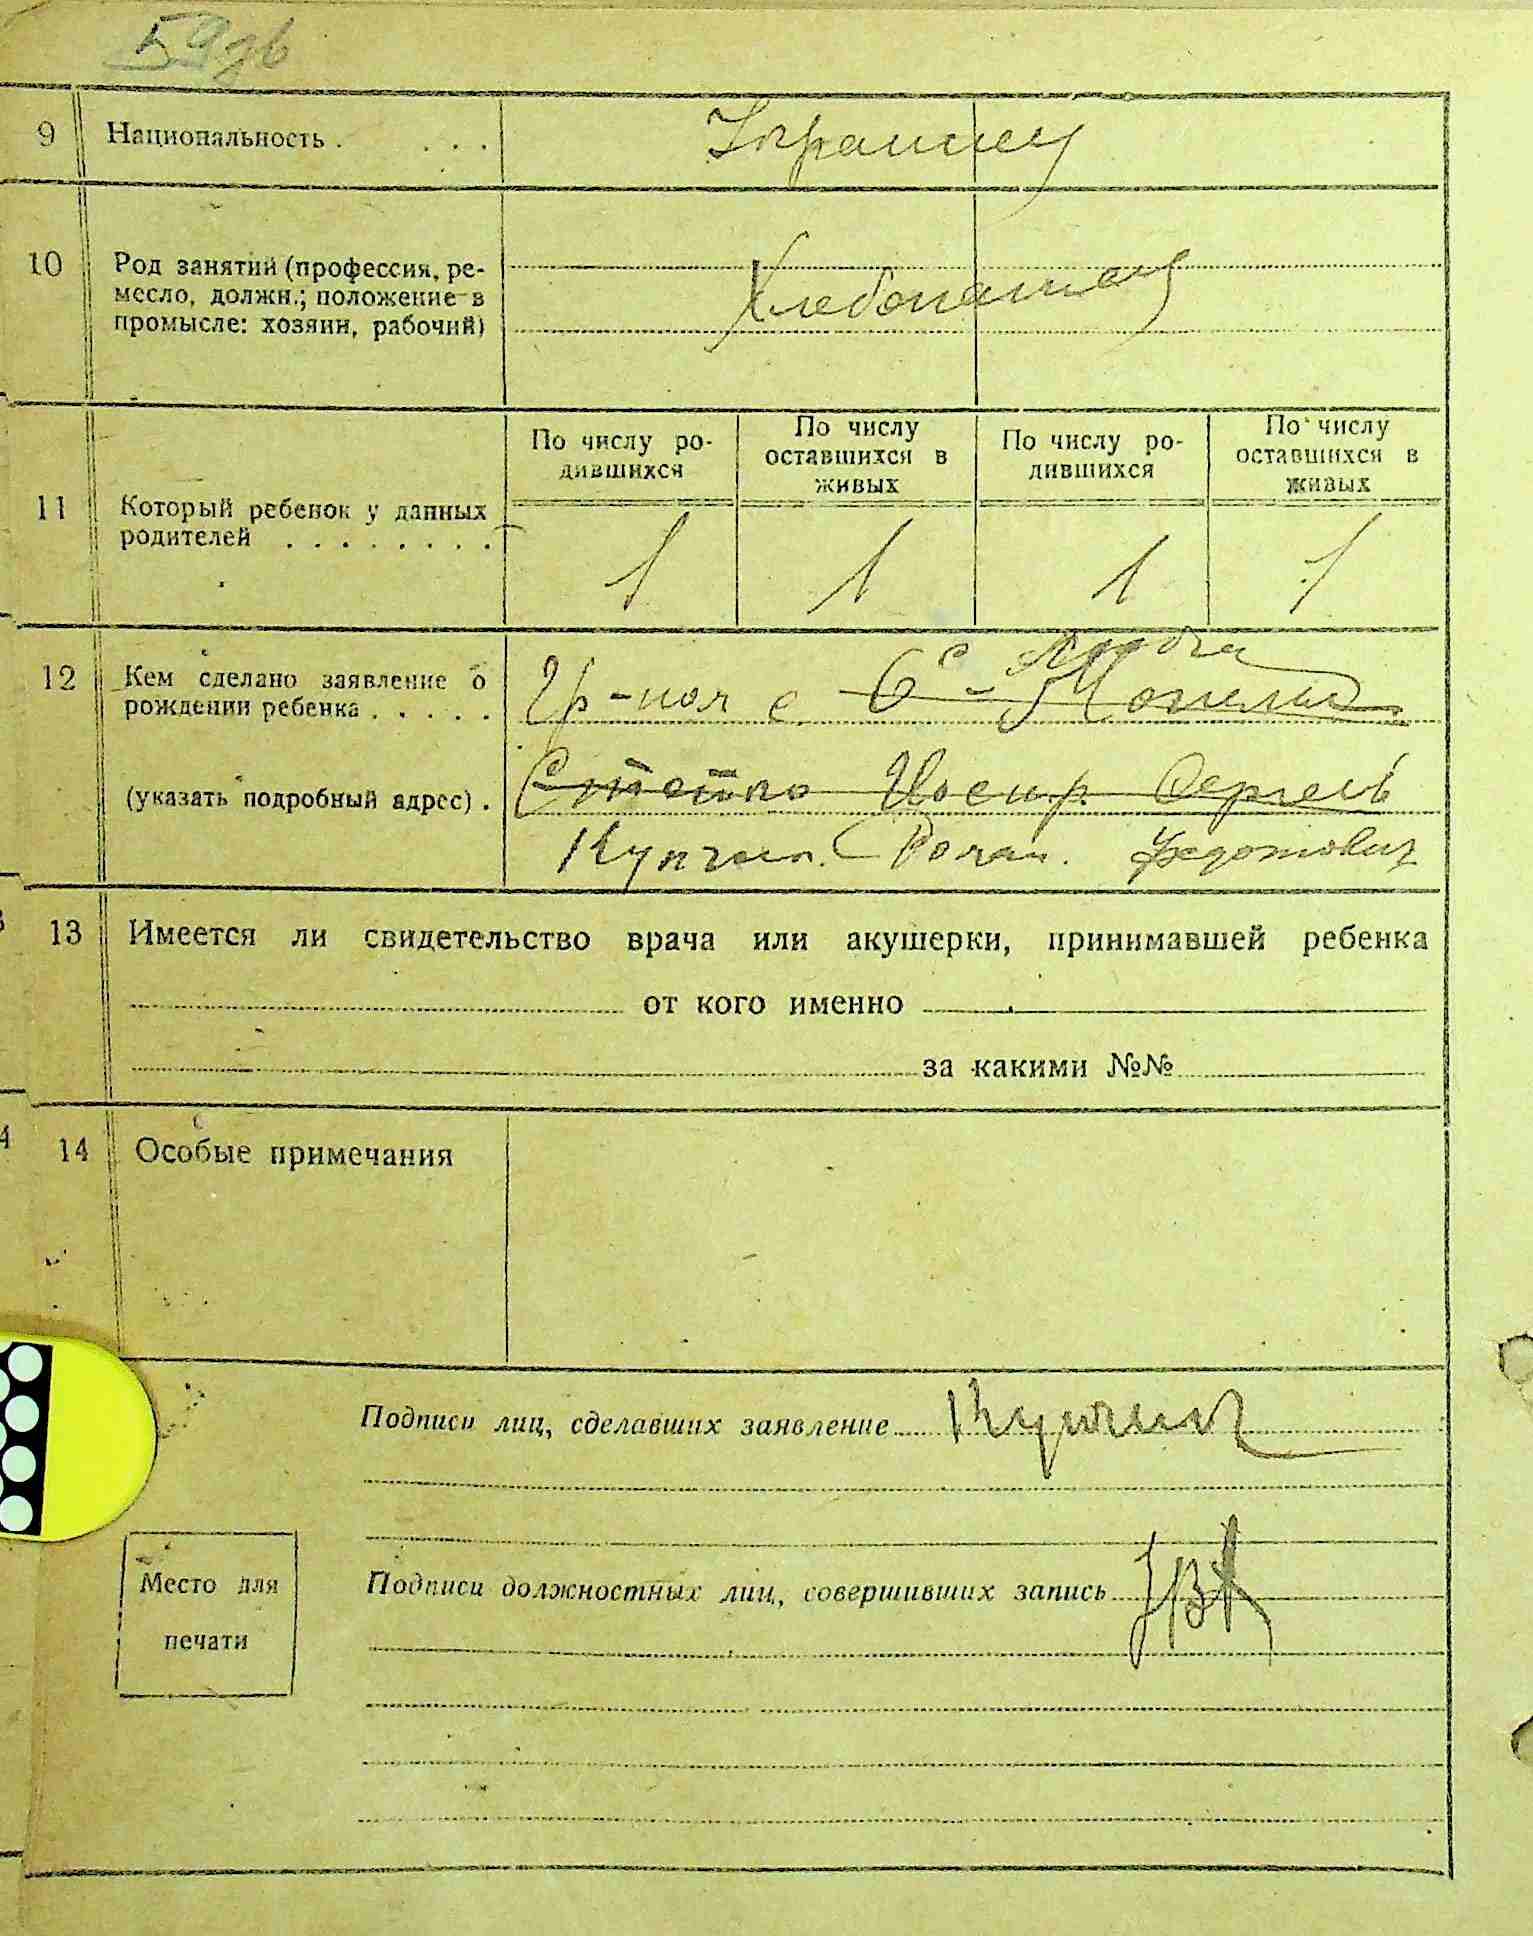 59
9 Национальность . . . . Украинец
10 Род занятий (профессия, ре-
месло, должн.; положение в
промысле: хозяин, рабочий)
Хлебопашец
По числу ро-
дившихся
По числу
оставшихся в
живых
По числу ро-
дившихся
По числу
оставшихся в
живых
11 Который ребенок у данных
родителей . . . . . . . .
1 1 1 1
12 Кем сделано заявление о
рождении ребенка . . . . .
(указать подробный адрес) .
Гр-ном с.
Иосиф Сергеев
Роман. Федотович
13 Имеется ли свидетельство врача или акушерки, принимавшей ребенка
от кого именно
за какими №№
14 Особые примечания
Подписи лиц, сделавших заявление
Подписи должностных лиц, совершивших запись
Место для
печати